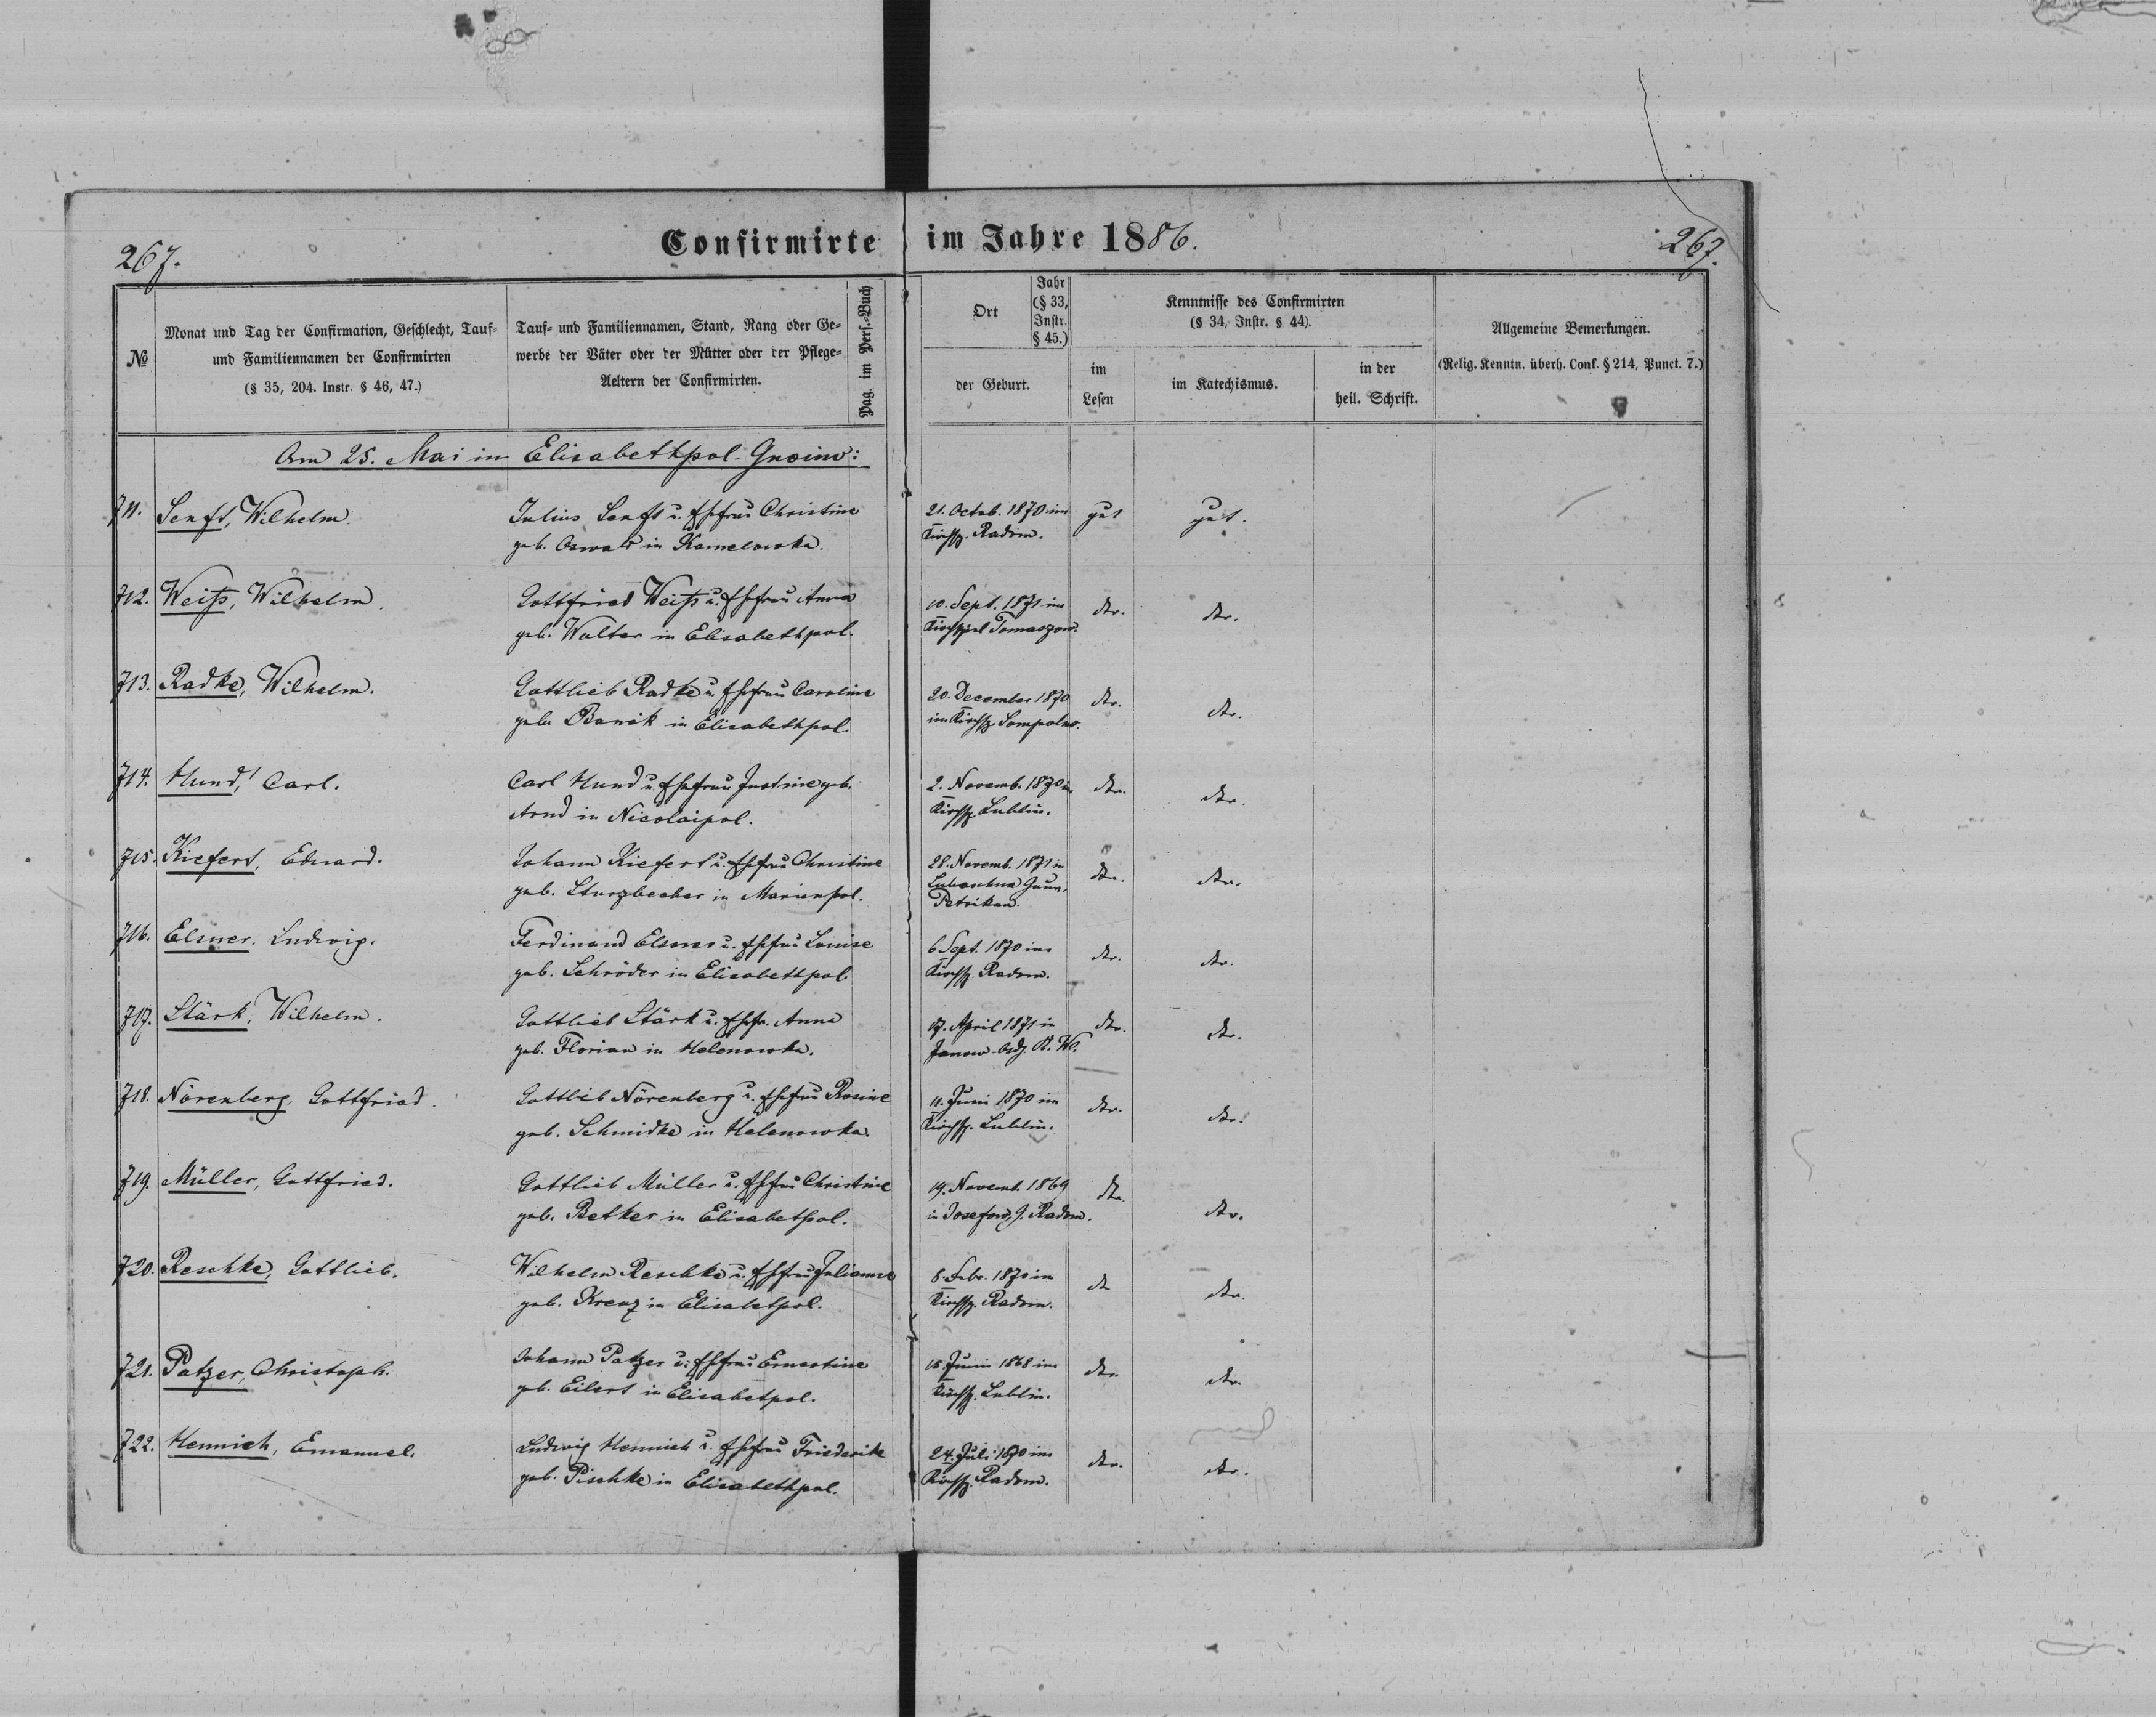 Confirmirte im Jahre 1886.
267. 267.
№
Monat und Tag der Confirmation, Geschlecht, Tauf-
und Familiennamen der Confirmirten
(§ 35, 204. Instr. § 46, 47.)
Tauf- und Familiennamen, Stand, Rang oder Ge-
werbe der Väter oder der Mütter oder der Pflege-
Aeltern der Confirmirten.
Pag. im Pers.-Buch
Ort
Jahr
(§ 33,
Instr.
§ 45.)
der Geburt.
Kenntnisse des Confirmirten
(§ 34, Instr. § 44).
im
Lesen
im Katechismus.
in der
heil. Schrift.
Allgemeine Bemerkungen.
(Relig. Kenntn. überh. Conf. § 214, Punct. 7.)
Am 25. Mai in Elisabethpol-
711. Senft, Wilhelm.
Julius Senft u. Ehefrau Christine
geb. Oswald in
21. Octob. 1870 im
Kirchsp. Radom.
gut
gut.
712. Weiß, Wilhelm.
Gottfried Weiß u. Ehefrau Anna
geb. Walter in Elisabethpol.
10. Sept. 1871 im
Kirchspiel Tomaszow.
dto.
dto.
713. Radke, Wilhelm.
Gottlieb Radke u. Ehefrau Caroline
geb. in Elisabethpol.
20. December 1870
im Kirchsp. Sompolno.
dto.
dto.
714. Hund, Carl.
Carl Hund u. Ehefrau Justine geb.
Arnd in Nicolaipol.
2. Novemb. 1870 im
Kirchsp. Lublin.
dto.
dto.
715. Kiefert, Eduard.
Johann Kiefert u. Ehefrau Christine
geb. Sturzbecher in Marienpol.
28. Novemb. 1871 in
Gouv.
Petrikau.
dto.
dto.
716. Elsner, Ludwig.
Ferdinand Elsner u. Ehefrau Louise
geb. Schröder in Elisabethpol.
6. Sept. 1870 im
Kirchsp. Radom.
dto.
dto.
717. Stärk, Wilhelm.
Gottlieb Stärk u. Ehefr. Anna
geb. Florian in Helenowka.
17. April 1871 in
Janow
dto.
dto.
718. Nörenberg, Gottfried.
Gottlieb Nörenberg u. Ehefrau Rosine
geb. Schmidke in Helenowka.
11. Juni 1870 im
Kirchsp. Lublin.
dto.
dto.
719. Müller, Gottfried.
Gottlieb Müller u. Ehefrau Christine
geb. Betker in Elisabethpol.
19. Novemb. 1869
in Josefow, G. Radom.
dto.
dto.
720. Reschke, Gottlieb.
Wilhelm Reschke u. Ehefrau Julianne
geb. Krenz in Elisabetpol.
8. Febr. 1870 im
Kirchsp. Radom.
dto
dto.
721. Patzer, Christoph.
Johann Patzer u. Ehefrau Ernestine
geb. Eilert in Elisabetpol.
15. Juni 1868 im
Kirchsp. Lublin.
dto.
dto.
722. Hennich, Emanuel.
Ludwig Hennich u. Ehefrau Friederike
geb. Pischke in Elisabethpol.
24. Juli 1870 im
Kirchsp. Radom.
dto.
dto.